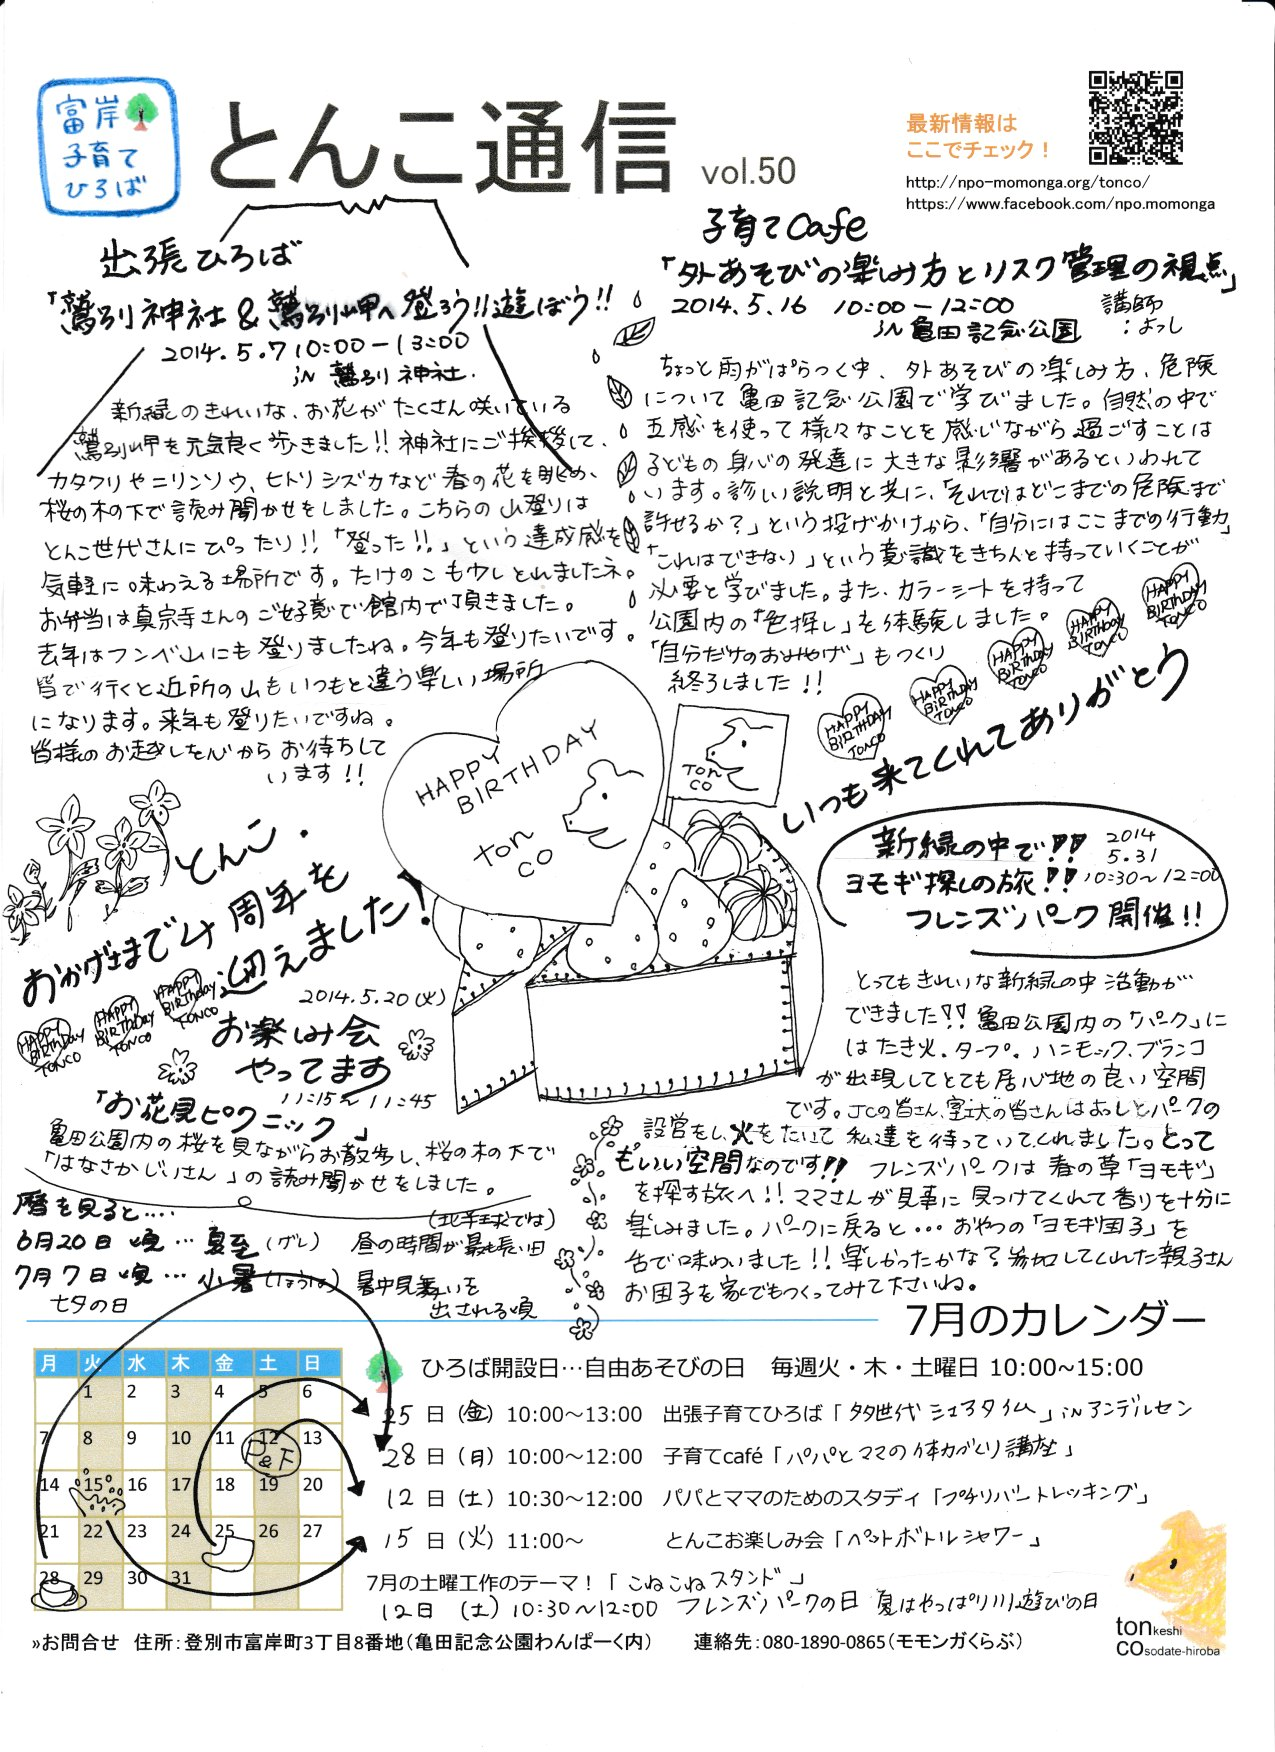 富岸
子育て
ひろば
とんこ通信 vol.50
最新情報は
ここでチェック！
http://npo-momonga.org/tonco/
https://www.facebook.com/npo.momonga
出張ひろば
「鷲別神社&鷲別岬へ登ろう!!遊ぼう!!
2014.5.7 10:00-13:00
in 鷲別神社.
新緑のきれいな、お花がたくさん咲いている
鷲別岬を元気良く歩きました!!神社にご挨拶して、
カタクリやニリンソウ、ヒトリシズカなど春の花を眺め、
桜の木の下で読み聞かせをしました。こちらの山登りは
とんこ世代さんにぴったり!!「登った!!」という達成感を
気軽に味わえる場所です。たけのこも少しとれましたネ。
お弁当は真宗寺さんのご好意で館内で頂きました。
去年はフンベ山にも登りましたね。今年も登りたいです。
皆で行くと近所の山もいつもと違う楽しい場所
になります。来年も登りたいですね。
皆様のお越しを心からお待ちして
います!!
子育てCafe
「外あそびの楽しみ方とリスク管理の視点」
2014.5.16 10:00-12:00
in 亀田記念公園
講師
:よっし
ちょっと雨がぱらつく中、外あそびの楽しみ方、危険
について亀田記念公園で学びました。自然の中で
五感を使って様々なことを感じながら過ごすことは
子どもの身心の発達に大きな影響があるといわれて
います。詳しい説明と共に、「それではどこまでの危険まで
許せるか?」という投げかけから、「自分にはここまでの行動」
「これはできない」という意識をきちんと持っていくことが
必要と学びました。また、カラーシートを持って
公園内の「色探し」を体験しました。
「自分だけのおみやげ」もつくり
終了しました!!
HAPPY BIRTHDAY TONCO
HAPPY BIRTHDAY TONCO
HAPPY BIRTHDAY TONCO
HAPPY BIRTHDAY TONCO
HAPPY BIRTHDAY TONCO
いつも来てくれてありがとう
HAPPY
BIRTHDAY
ton
co
TON
CO
とんこ.
おかげさまで4周年を
迎えました!
HAPPY BIRTHDAY TONCO
HAPPY BIRTHDAY TONCO
HAPPY BIRTHDAY TONCO
2014.5.20(火)
お楽しみ会
やってます
11:15~11:45
「お花見ピクニック」
亀田公園内の桜を見ながらお散歩し、桜の木の下で
「はなさかじいさん」の読み聞かせをしました。
暦を見ると....
6月20日頃…夏至(げし) (北半球では)
昼の時間が最も長い日
7月7日頃…小暑(しょうしょ) 暑中見舞いを
七夕の日 出される頃
新緑の中で!! 2014
5.31
ヨモギ探しの旅!! 10:30~12:00
フレンズパーク開催!!
とってもきれいな新緑の中活動が
できました!!亀田公園内の「パーク」に
はたき火、タープ。ハンモック、ブランコ
が出現してとても居心地の良い空間
です。JCの皆さん、室工大の皆さんはよっしとパークの
設営をし、火をたいて私達を待っていてくれました。とって
もいい空間なのです!! フレンズパークは春の草「ヨモギ」
を探す旅へ!!ママさんが見事に見つけてくれて香りを十分に
楽しみました。パークに戻ると…おやつの「ヨモギ団子」を
皆で味わいました!!楽しかったかな?参加してくれた親子さん
お団子を家でもつくってみて下さいね。
7月のカレンダー
月 火 水 木 金 土 日
1 2 3 4 5 6
7 8 9 10 11 12 13
14 15 16 17 18 19 20
21 22 23 24 25 26 27
28 29 30 31
ひろば開設日…自由あそびの日 毎週火・木・土曜日 10:00~15:00
25日(金) 10:00~13:00 出張子育てひろば「多世代シェアタイム」inアンデルセン
28日(月) 10:00~12:00 子育てcafé「パパとママの体力づくり講座」
12日(土) 10:30~12:00 パパとママのためのスタディ「プチリバートレッキング」
15日(火) 11:00~ とんこお楽しみ会「ペットボトルシャワー」
7月の土曜工作のテーマ！「こねこねスタンド」
12日 (土) 10:30~12:00 フレンズパークの日 夏はやっぱり川遊びの日
»お問合せ 住所:登別市富岸町3丁目8番地(亀田記念公園わんぱーく内) 連絡先:080-1890-0865(モモンガくらぶ)
tonkeshi
COsodate-hiroba